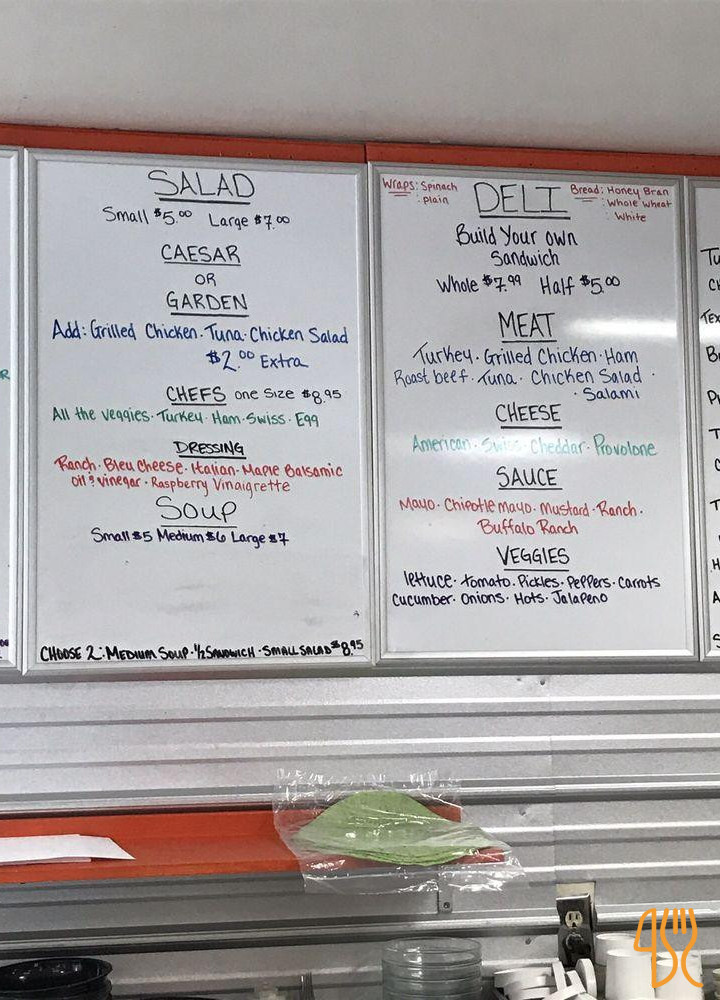 SALAD
Small $5.00 Large $7.00
CAESAR
OR
GARDEN
Add: Grilled Chicken. Tuna. Chicken Salad
$2.00 Extra
CHEFS one Size $8.95
All the veggies. Turkey. Ham. Swiss. Egg
DRESSING
Ranch. Bleu Cheese. Italian. Maple Balsamic
oil & vinegar. Raspberry Vinaigrette
SOUP
Small $5 Medium $6 Large $7
CHOOSE 2: MEDIUM SOUP. 1/2 SANDWICH. SMALL SALAD $8.95
Wraps: Spinach
: Plain
DELI
Bread: Honey Bran
: Whole Wheat
: White
Build Your own
Sandwich
Whole $7.99 Half $5.00
MEAT
Turkey. Grilled Chicken. Ham
Roast beef. Tuna. Chicken Salad.
. Salami
CHEESE
American. Swiss. Cheddar. Provolone
SAUCE
Mayo. Chipotle mayo. Mustard. Ranch.
Buffalo Ranch
VEGGIES
lettuce. tomato. Pickles. Peppers. Carrots
Cucumber. Onions. Hots. Jalapeno